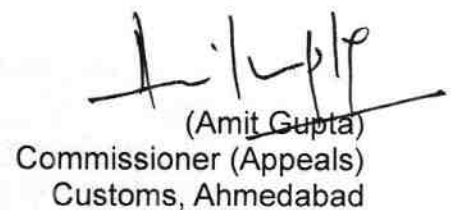 (Amit Gupta)
Commissioner (Appeals)
Customs, Ahmedabad